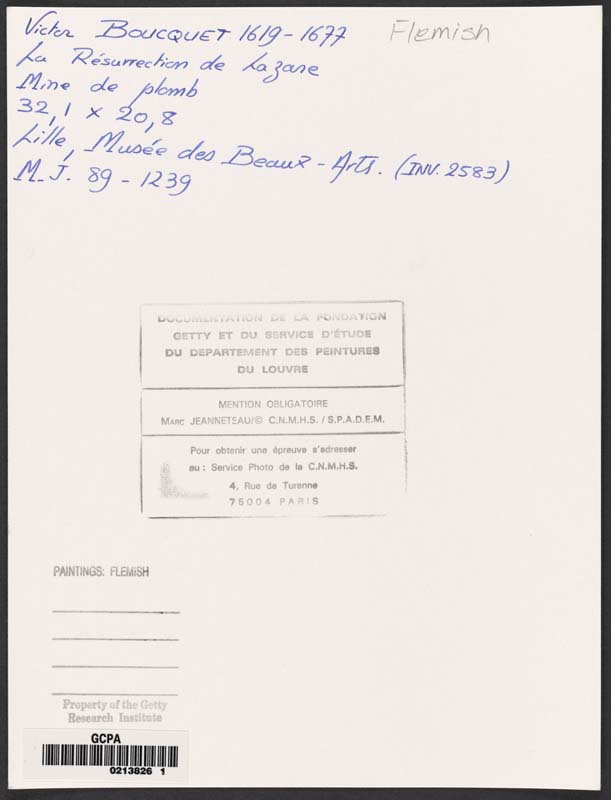 Victor BOUCQUET 1619-1677 Flemish
La Résurrection de Lazare
Mine de plomb
32,1 x 20,8
Lille, Musée des Beaux-Arts. (INV. 2583)
M.J. 89-1239
DOCUMENTATION DE LA FONDATION
GETTY ET DU SERVICE D'ÉTUDE
DU DEPARTEMENT DES PEINTURES
DU LOUVRE
MENTION OBLIGATOIRE
MARC JEANNETEAU/© C.N.M.H.S. / S.P.A.D.E.M.
Pour obtenir une épreuve s'adresser
au : Service Photo de la C.N.M.H.S.
4, Rue de Turenne
75004 PARIS
PAINTINGS: FLEMISH
Property of the Getty
Research Institute
GCPA
0213826 1